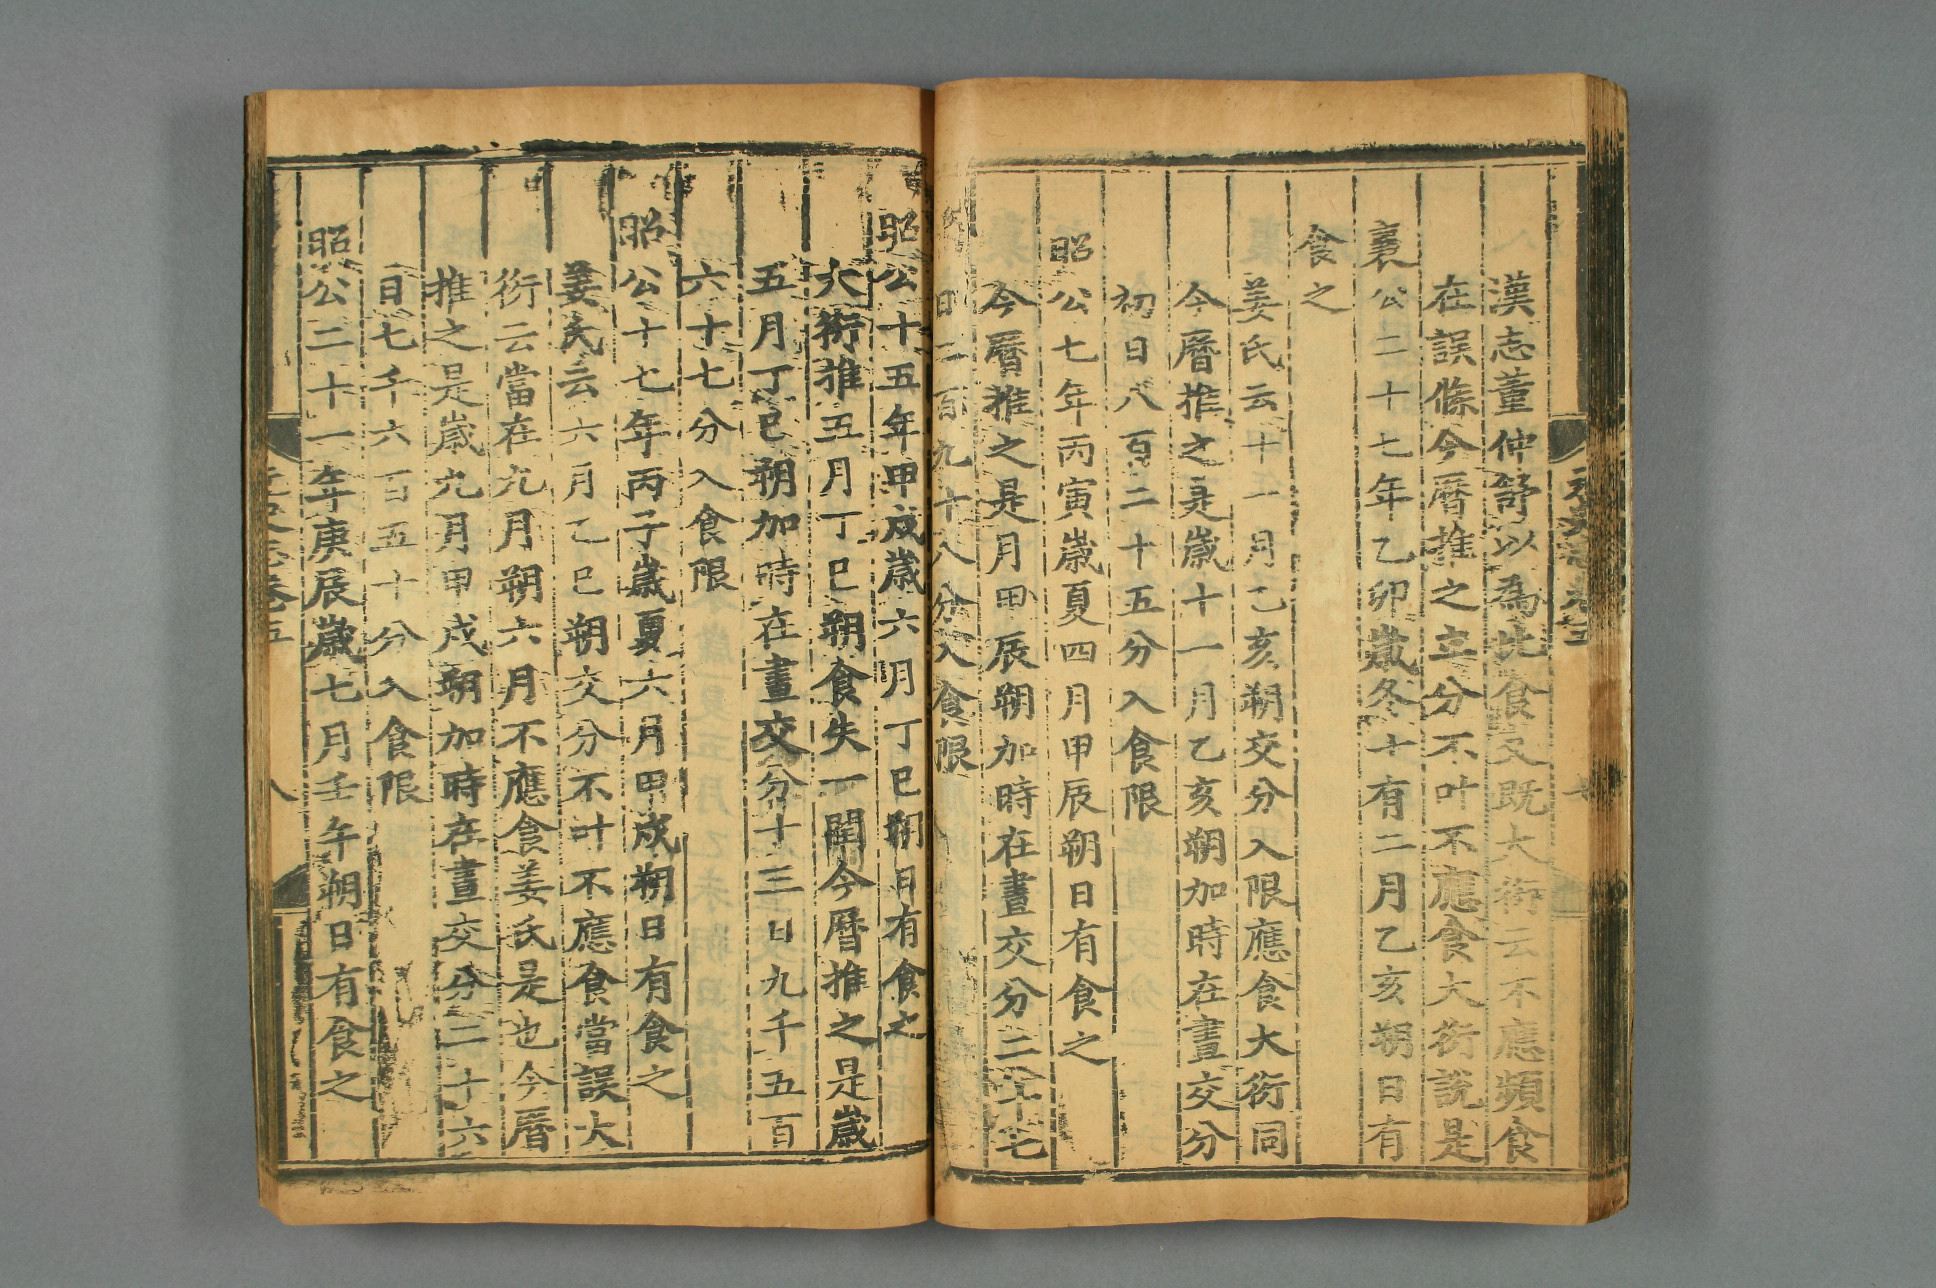 漢志董仲舒以爲比食又既大衍云不應頻食
在誤條今曆推之立分不叶不應食大衍說是
襄公二十七年乙卯歲冬十有二月乙亥朔日有
食之
姜氏云十一月乙亥朔交分入限應食大衍同
今曆推之是歲十一月乙亥朔加時在晝交分
初日八百二十五分入食限
昭公七年丙寅歲夏四月甲辰朔日有食之
今曆推之是月甲辰朔加時在晝交分二十七
日二百九十八分入食限
昭公十五年甲戌歲六月丁巳朔日有食之
大衍推五月丁巳朔食失一閏今曆推之是歲
五月丁巳朔加時在晝交分十三日九千五百
六十七分入食限
昭公十七年丙子歲夏六月甲戌朔日有食之
姜氏云六月乙巳朔交分不叶不應食當誤大
衍云當在九月朔六月不應食姜氏是也今曆
推之是歲九月甲戌朔加時在晝交分二十六
日七千六百五十分入食限
昭公二十一年庚辰歲七月壬午朔日有食之
元史志卷五
八